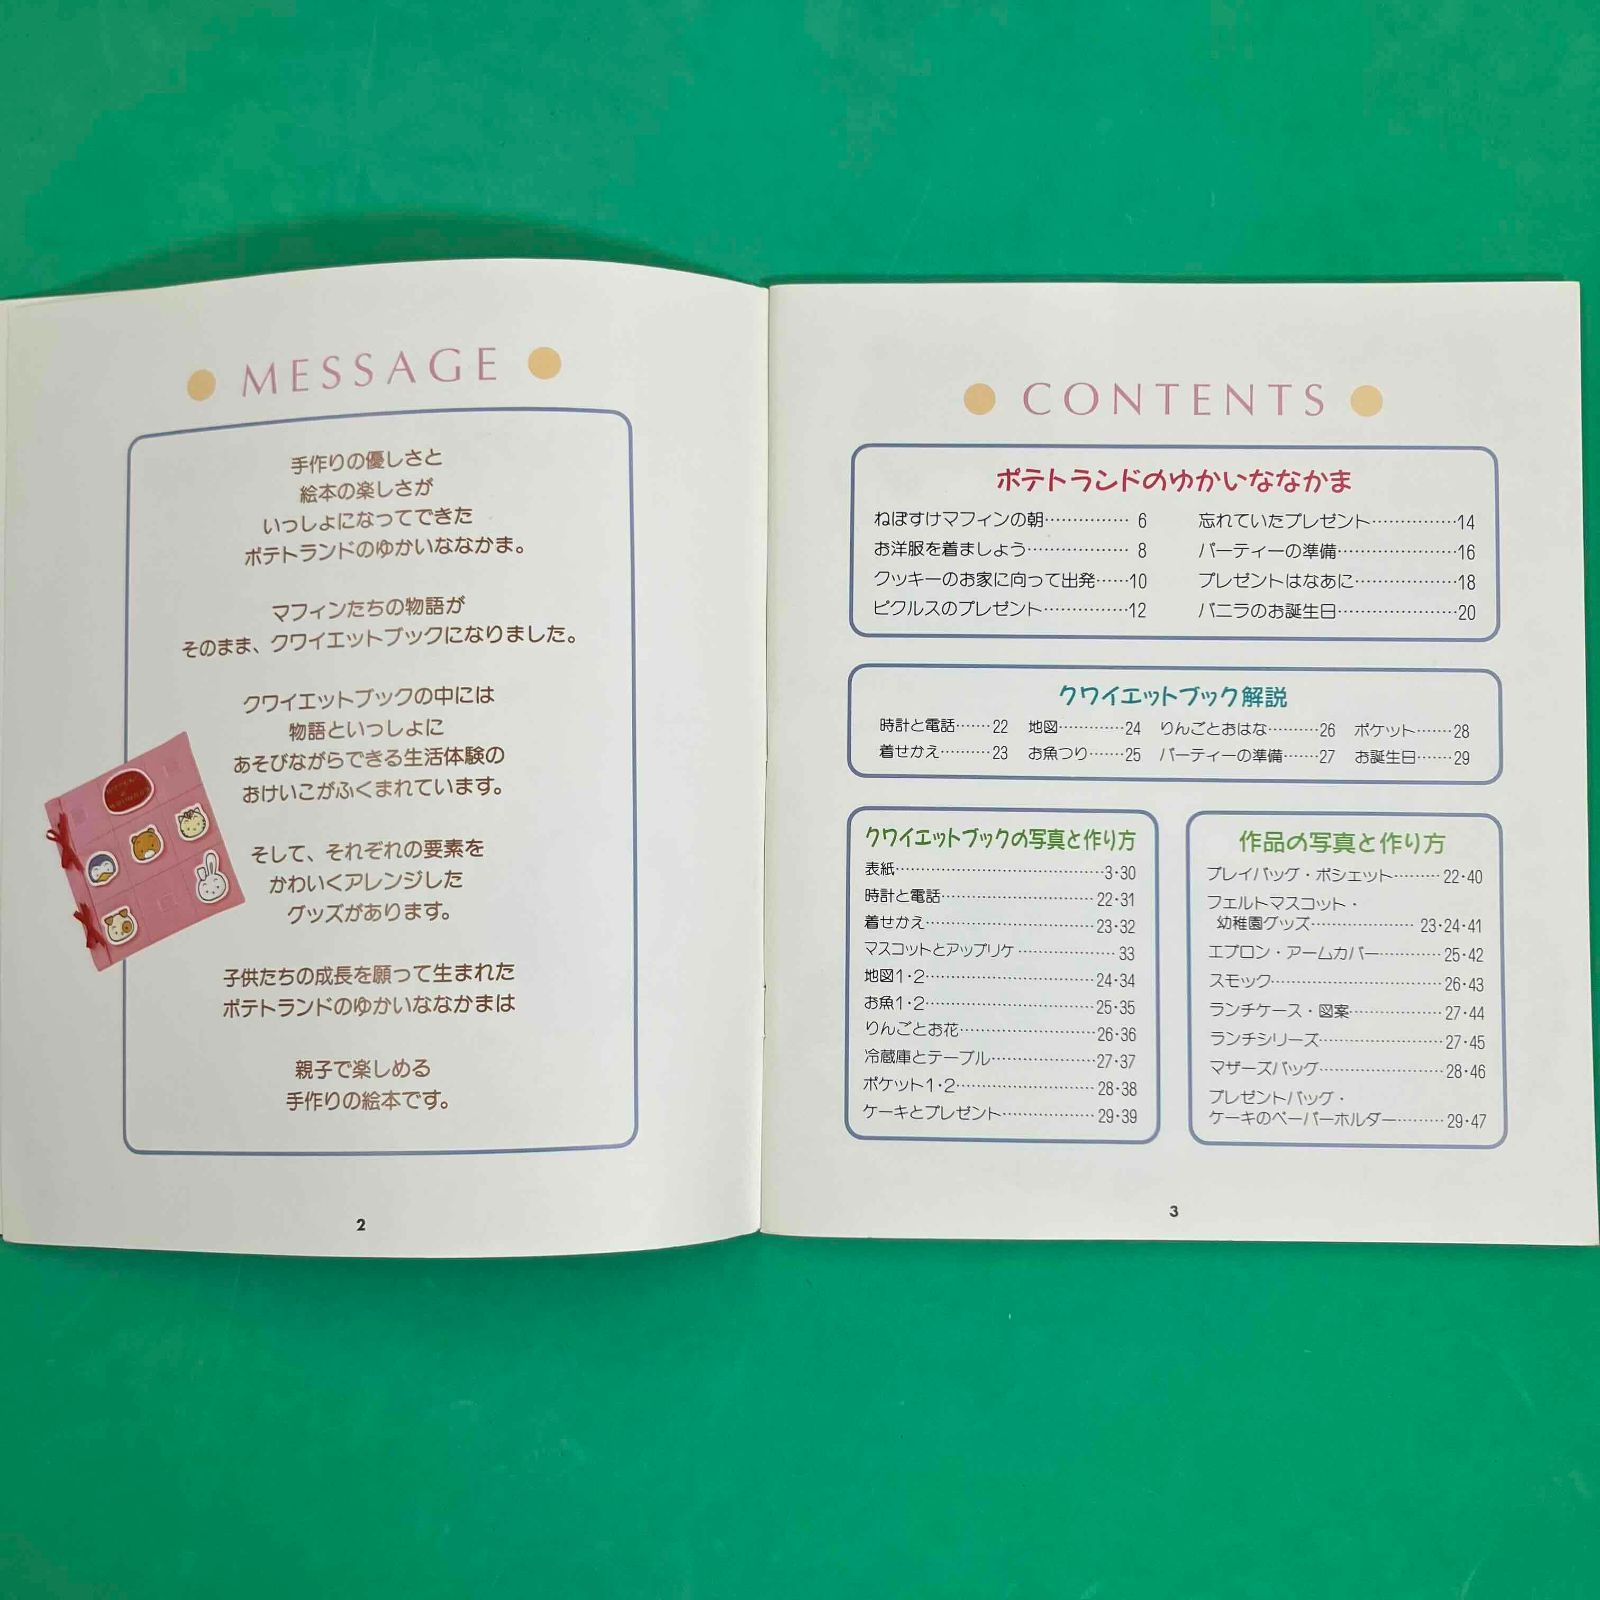 MESSAGE
手作りの優しさと
絵本の楽しさが
いっしょになってできた
ポテトランドのゆかいななかま。
マフィンたちの物語が
そのまま、クワイエットブックになりました。
クワイエットブックの中には
物語といっしょに
あそびながらできる生活体験の
おけいこがふくまれています。
そして、それぞれの要素を
かわいくアレンジした
グッズがあります。
子供たちの成長を願って生まれた
ポテトランドのゆかいななかまは
親子で楽しめる
手作りの絵本です。
2
CONTENTS
ポテトランドのゆかいななかま
ねぼすけマフィンの朝…………… 6
お洋服を着ましよう……………… 8
クッキーのお家に向って出発……10
ピクルスのプレゼント……………12
忘れていたプレゼント……………14
パーティーの準備…………………16
プレゼントはなあに………………18
バニラのお誕生日…………………20
クワイエットブック解説
時計と電話……22 地図…………24 りんごとおはな………26 ポケット……28
着せかえ………23 お魚つり……25 パーティーの準備……27 お誕生日……29
クワイエットブックの写真と作り方
表紙…………………………………3・30
時計と電話………………………22・31
着せかえ…………………………23・32
マスコットとアップリケ………………33
地図1・2…………………………24・34
お魚1・2…………………………25・35
りんごとお花……………………26・36
冷蔵庫とテーブル………………27・37
ポケット1・2……………………28・38
ケーキとプレゼント……………29・39
作品の写真と作り方
プレイバッグ・ポシェット………22・40
フェルトマスコット・
幼稚園グッズ………………23・24・41
エプロン・アームカバー…………25・42
スモック……………………………26・43
ランチケース・図案………………27・44
ランチシリーズ……………………27・45
マザーズバッグ……………………28・46
プレゼントバッグ・
ケーキのペーパーホルダー………29・47
3